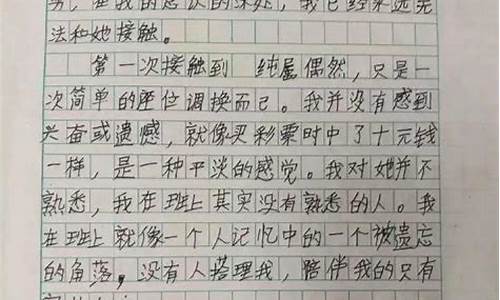 男，在我的意识的深处，我已经永远无
法和她接触。
第一次接触到 纯属偶然，只是一
次简单的座位调换而已。我并没有感到
兴奋或遗憾，就像买彩票时中了十元钱
一样，是一种平淡的感觉。我对她并不
熟悉，我在班上其实没有熟悉的人。我
在班上就像一个人记忆中的一个被遗忘
的角落，没有人搭理我，陪伴我的只有